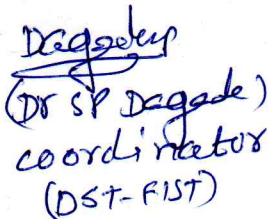 Dagade
(Dr SP Dagade)
coordinator
(DST-FIST)